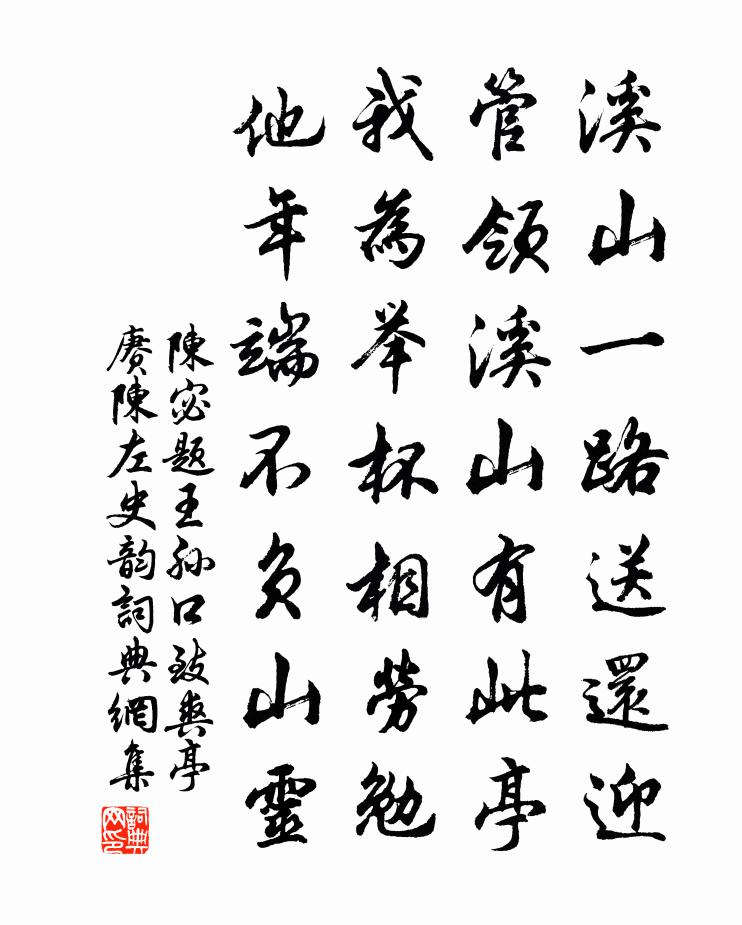 溪山一路送還迎
管領溪山有此亭
我為举杯相勞勉
他年端不负山靈
陳宓题王孙口致爽亭
赓陳左史韵詞典網集
詞典网印